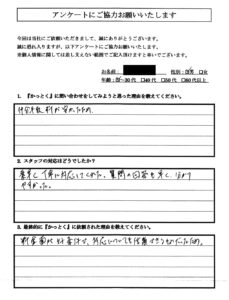 アンケートにご協力お願いいたします
今回は当社にご依頼いただきまして、誠にありがとうございます。
誠に恐れ入りますが、以下アンケートにご協力お願いいたします。
※個人情報に関しては差し支えない範囲でご記入頂けますと幸いでございます。
お名前
性別：☑男 □女
年齢：☑～30代 □40代 □50代 □60代以上
1. 『かっとく』に問い合わせをしてみようと思った理由を教えてください。
仲介手数料が安かったため。
2. スタッフの対応はどうでしたか？
素早く丁寧に対応してくれた。質問の回答も早く、分かり
やすかった。
3. 最終的に『かっとく』に依頼された理由を教えてください。
料金面が
対応についても信頼できるものだったため。